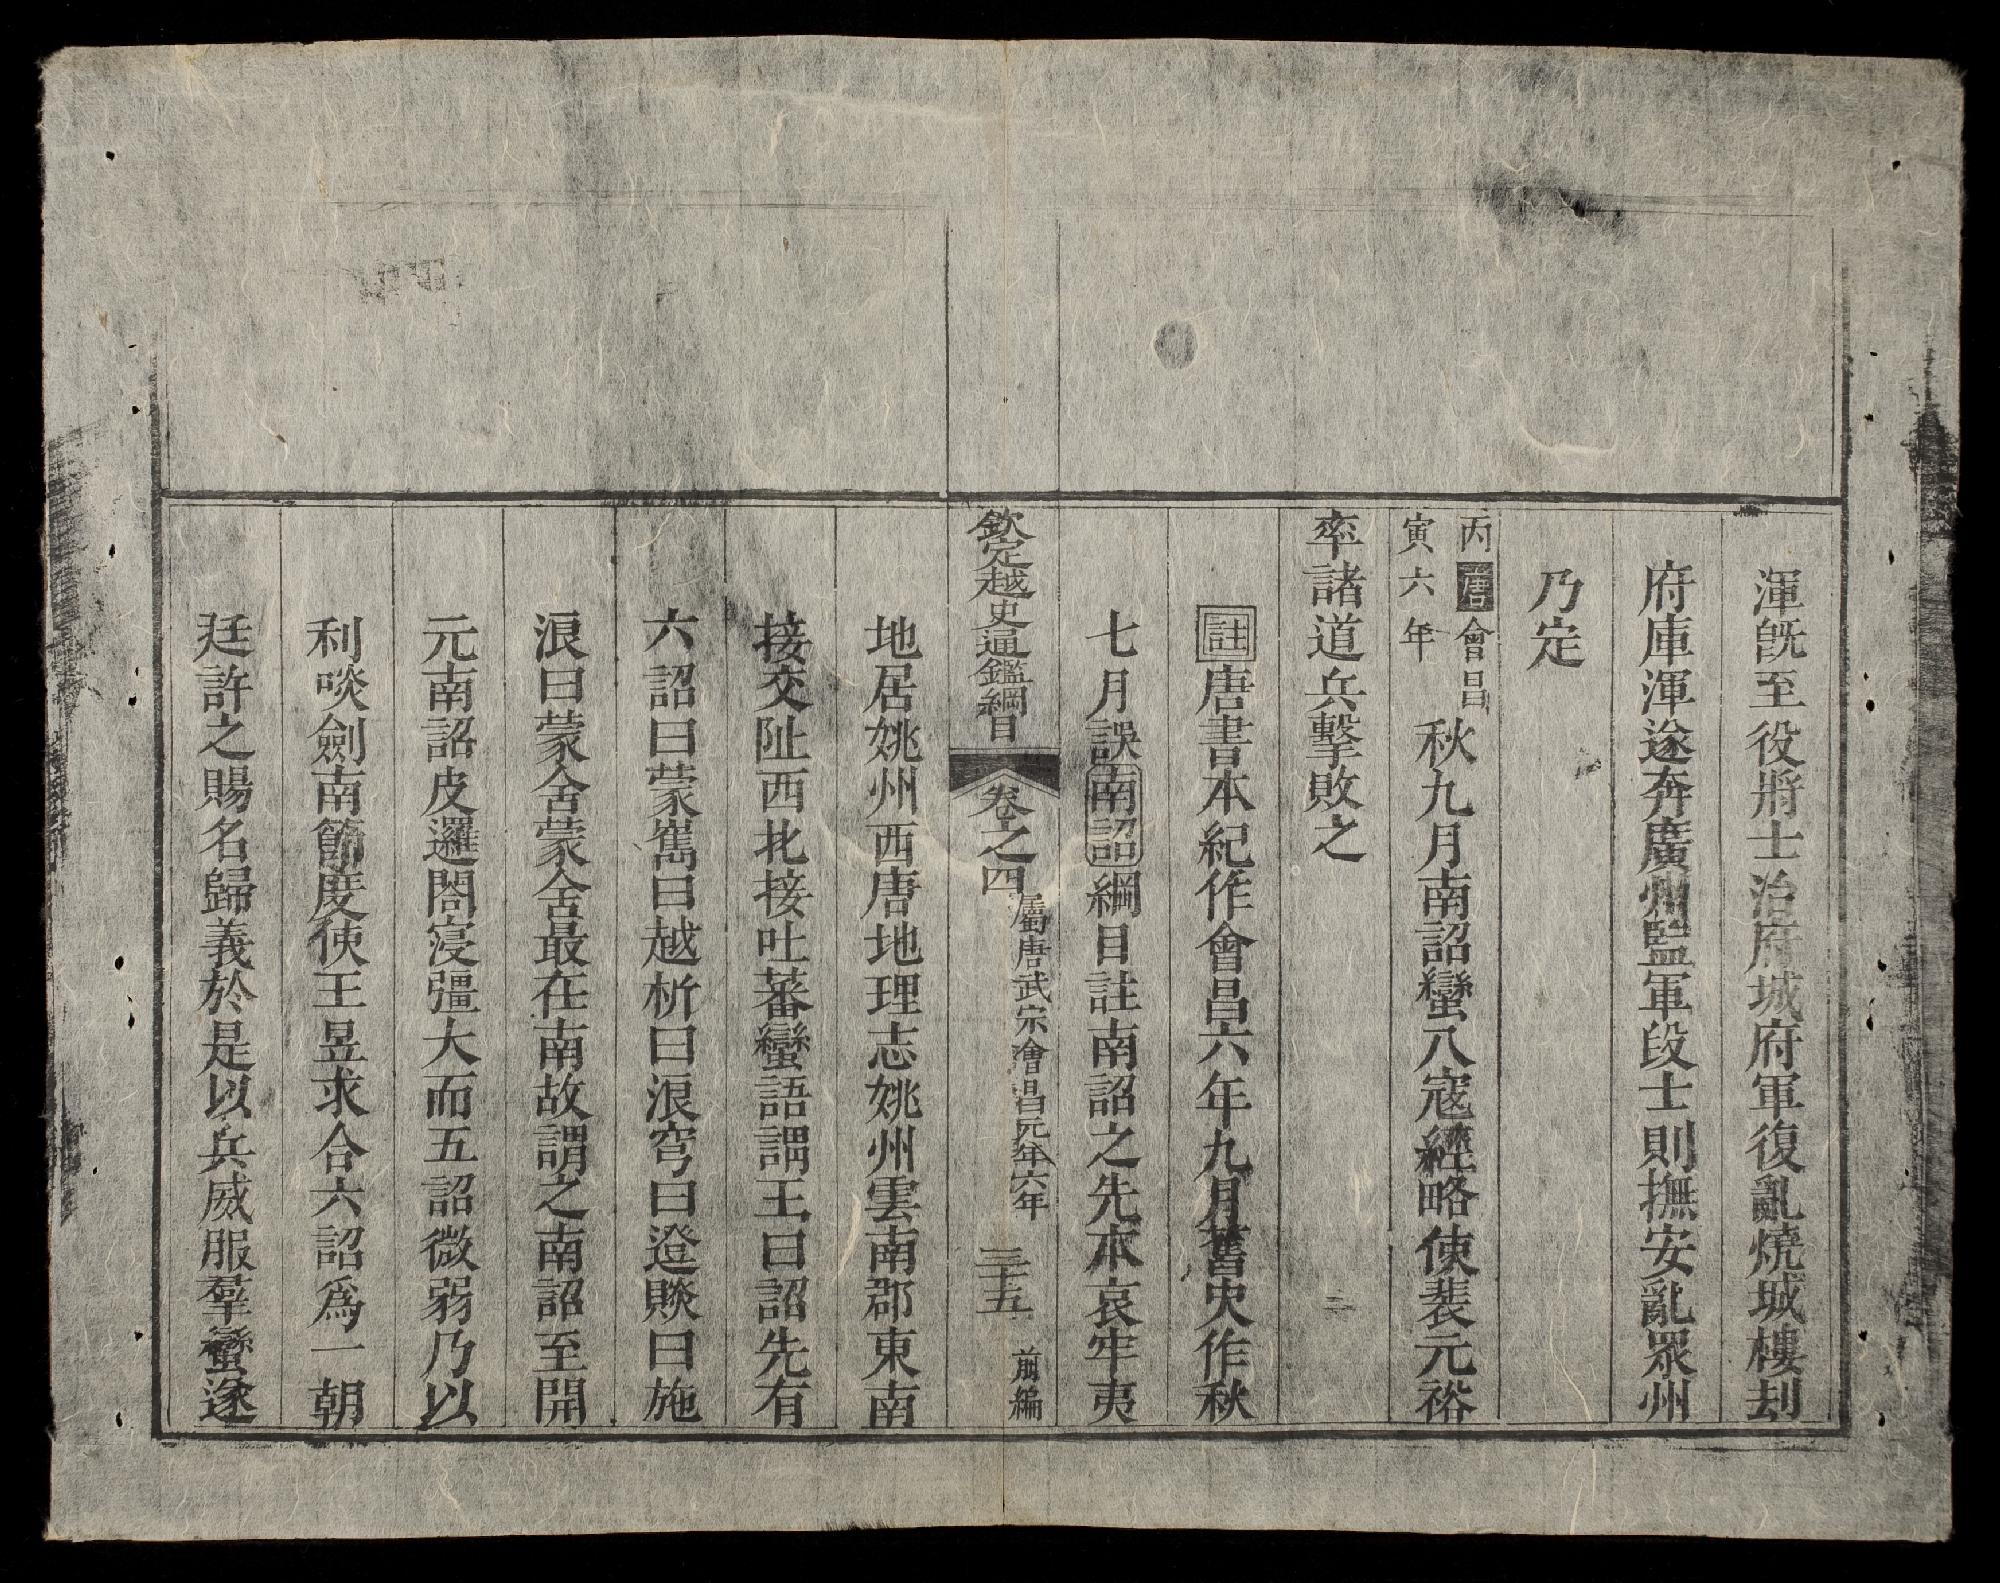 渾旣至役將士治府城府軍復亂燒城樓刦
府庫渾遂奔廣州監軍段士則撫安亂眾州
乃定
丙唐會昌
寅六年
秋九月南詔蠻入寇經略使裴元裕
率諸道兵擊敗之
註唐書本紀作會昌六年九月舊史作秋
七月誤南詔綱目註南詔之先本哀牢夷
欽定越史通鑑綱目
卷之四
屬唐武宗會昌元年六年
三十五
前編
地居姚州西唐地理志姚州雲南郡東南
接交阯西北接吐蕃蠻語謂王曰詔先有
六詔曰蒙嶲曰越析曰浪穹曰邆賧曰施
浪曰蒙舍蒙舍最在南故謂之南詔至開
元南詔皮邏閤寖彊大而五詔微弱乃以
利啖劍南節度使王昱求合六詔爲一朝
廷許之賜名歸義於是以兵威服羣蠻遂